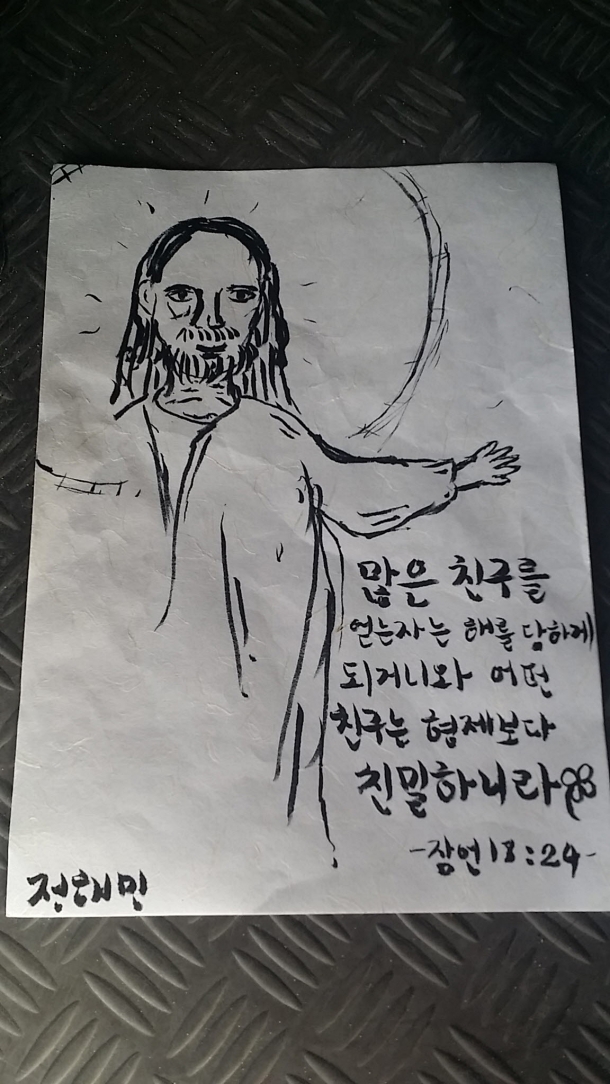 많은 친구를
얻는자는 해를 당하게
되거니와 어떤
친구는 형제보다
친밀하니라
-잠언18:24-
전해민